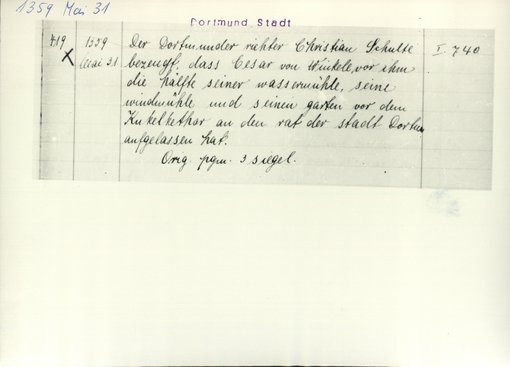 1359 Mai 31
Dortmund Stadt
419 1359 Der Dortmunder richter Christian Schulte I. 740
X Mai 31 bezeugt, dass Cesar von Winkele, vor ihm
die hälfte seiner wassermühle, seine
windmühle und seinen garten vor dem
Kukelkethor an den rat der stadt Dortm
aufgelassen hat.
Orig pgm. 3 siegel.